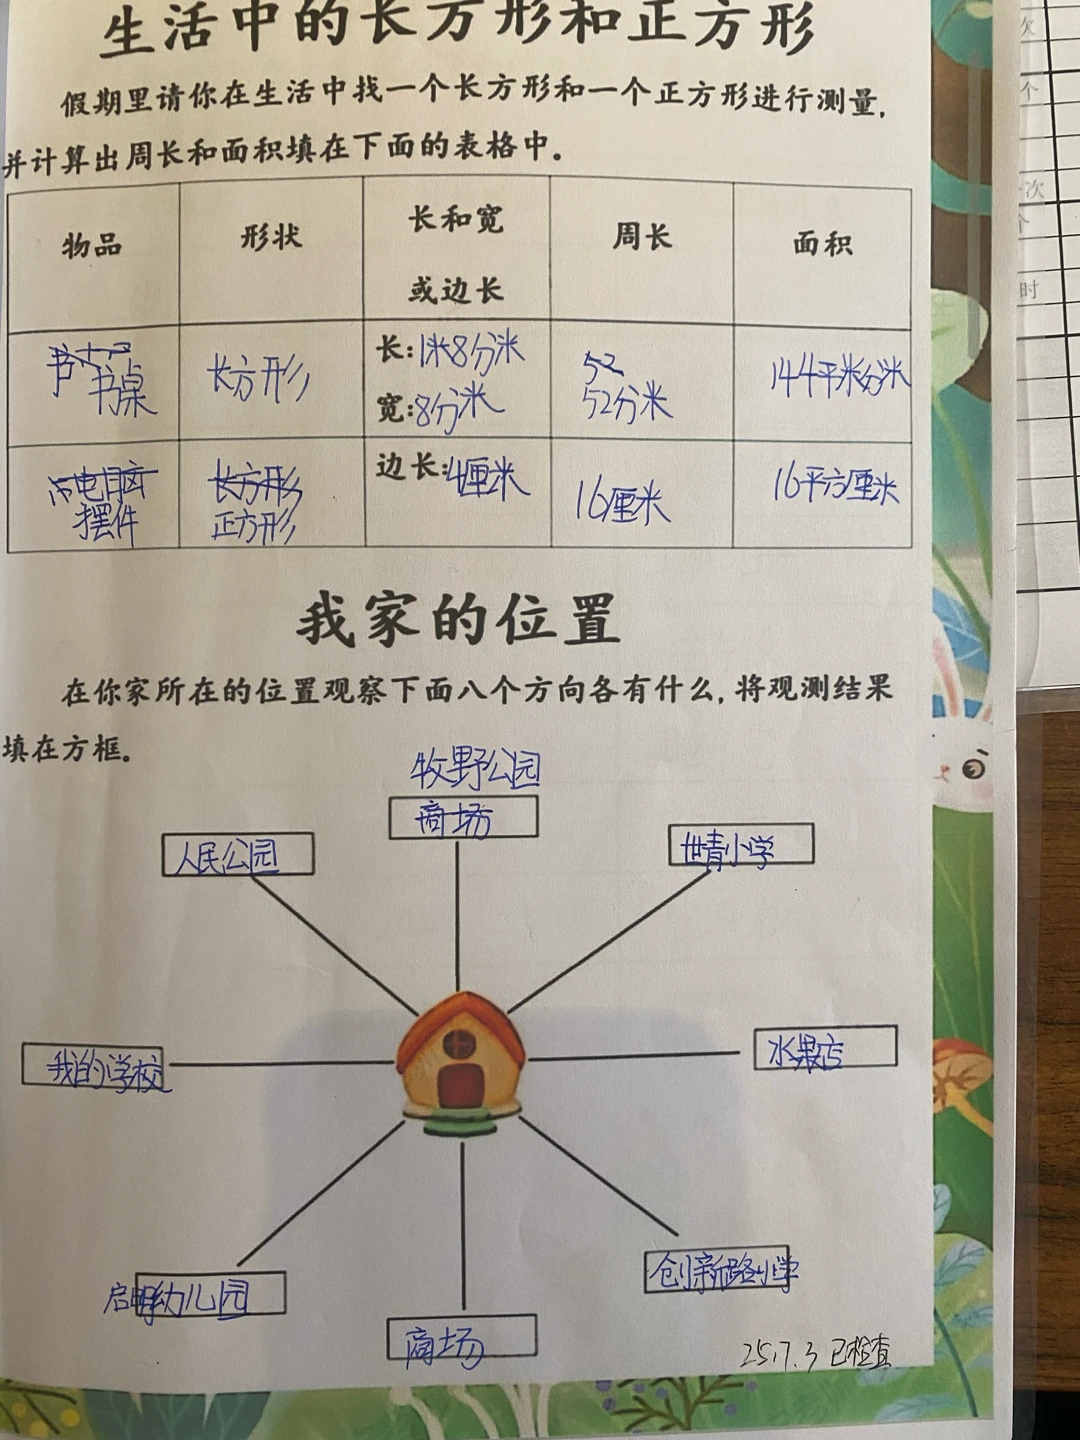 生活中的长方形和正方形
假期里请你在生活中找一个长方形和一个正方形进行测量,
并计算出周长和面积填在下面的表格中。
物品 形状 长和宽 或边长 周长 面积
书桌 长方形 长:1米8分米 52 144平米分米
宽:8分米 52分米
电脑 长方形 边长:4厘米 16厘米 16平方厘米
摆件 正方形
我家的位置
在你家所在的位置观察下面八个方向各有什么,将观测结果
填在方框。
牧野公园
人民公园 商场 世青小学
我的学校 水果店
启明幼儿园 创新路小学
商场
25.7.3 已检查
次
个
次
个
时